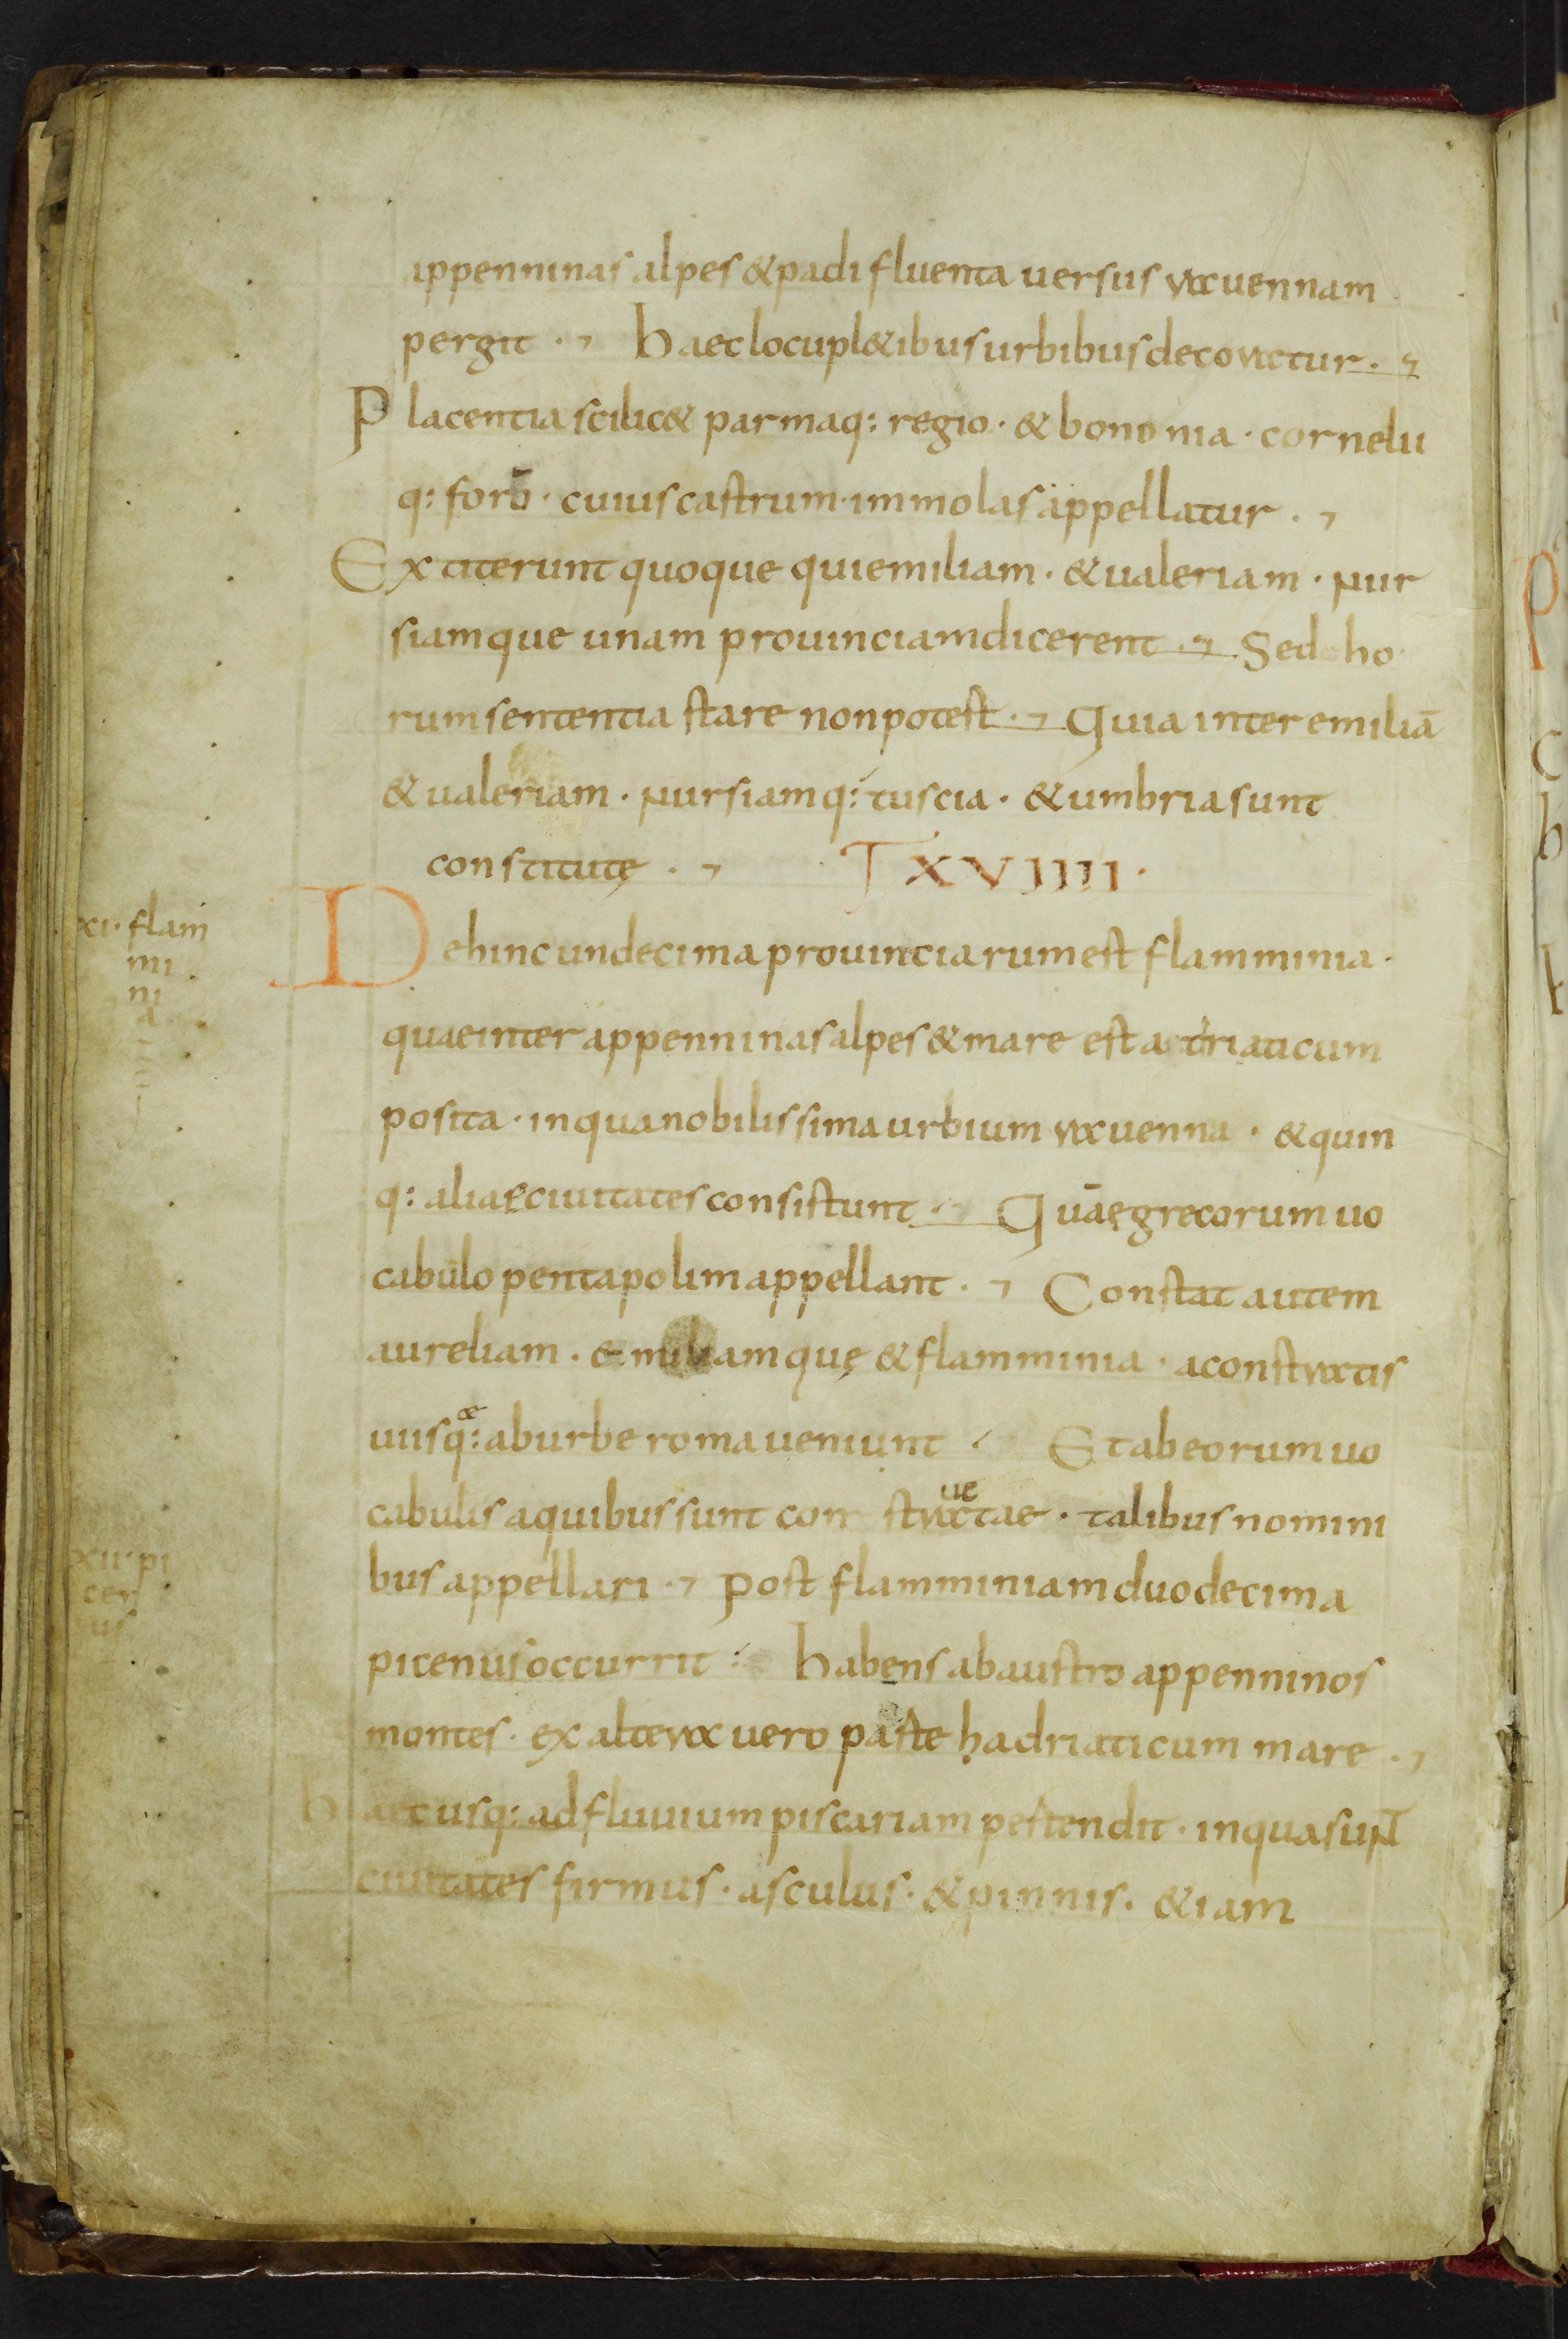 appenninas alpes & padi fluenta uersus rauennam
pergit · Haec locupl&ibus urbibus decoratur ·
Placentia scilic& parmaq: regio · & bononia · cornelii
q: forō · cuius castrum immolas appellatur ·
Extiterunt quoque qui emiliam · & ualeriam · nur
siamque unam prouinciam dicerent · Sed ho
rum sententia stare non potest · Quia inter emiliā
& ualeriam · nursiamq: tuscia · & umbria sunt
constitutę · XVIIII ·
xi· flam
mi
ni
a
Dehinc undecima prouinciarum est flamminia ·
quae inter appenninas alpes & mare est adriaticum
posita · in qua nobilissima urbium rauenna · & quin
q: aliae ciuitates consistunt · Quae grecorum uo
cabulo pentapolim appellant · Constat autem
aureliam · emiliamquę & flamminia · a constratis
uiisq: ab urbe roma ueniunt · Et ab eorum uo
cabulis a quibus sunt con stractae · talibus nomini
xii· pi
cen
us
bus appellari · Post flamminiam duodecima
picenus occurrit · Habens ab austro appenninos
montes · ex altera uero paste hadriaticum mare ·
Haec usq: ad fluuium piscariam pestendit · in qua sunt
ciuitates firmus · asculus · & pinnis · & iam